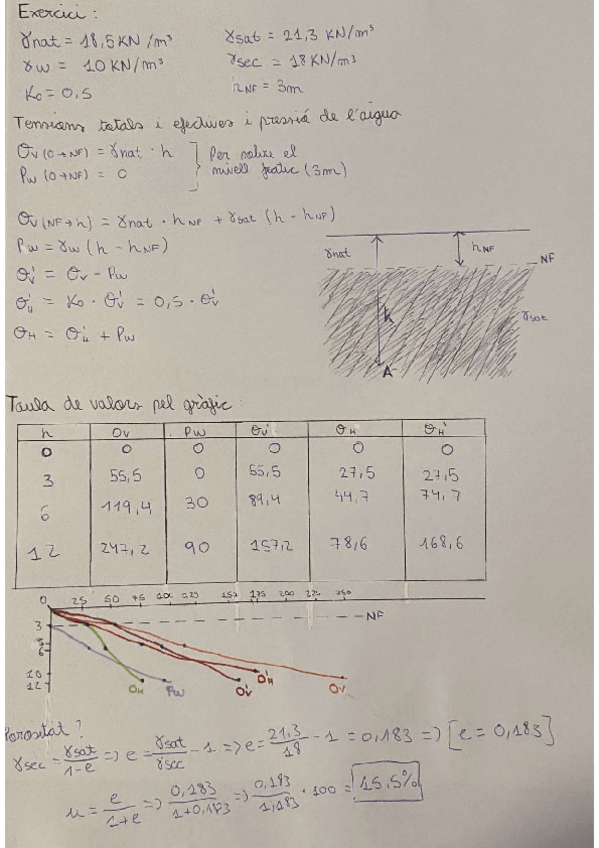 Exercici :
γnat = 18,5 KN/m³ γsat = 21,3 KN/m³
γw = 10 KN/m³ γsec = 18 KN/m³
K₀ = 0,5 hNF = 3m
Tensions totals i efectives i pressió de l'aigua
σv (0→NF) = γnat · h
Pw (0→NF) = 0
Per sobre el
nivell freàtic (3m)
σv (NF→h) = γnat · hNF + γsat (h - hNF)
Pw = γw (h - hNF)
σ'v = σv - Pw
σ'H = K₀ · σ'v = 0,5 · σ'v
σH = σ'H + Pw
γnat hNF NF
h γsat
A
Taula de valors pel gràfic:
h σv Pw σ'v σH σH'
0 0 0 0 0 0
3 55,5 0 55,5 27,5 27,5
6 119,4 30 89,4 44,7 74,7
12 247,2 90 157,2 78,6 168,6
0 25 50 75 100 125 150 175 200 225 250
3 NF
5
6
10
12
σH Pw σ'v σ'H σv
Porositat?
γsec = γsat/1-e => e = γsat/γsec - 1 => e = 21,3/18 - 1 = 0,183 => [e = 0,183]
u = e/1+e => 0,183/1+0,183 => 0,183/1,183 · 100 = 15.5%